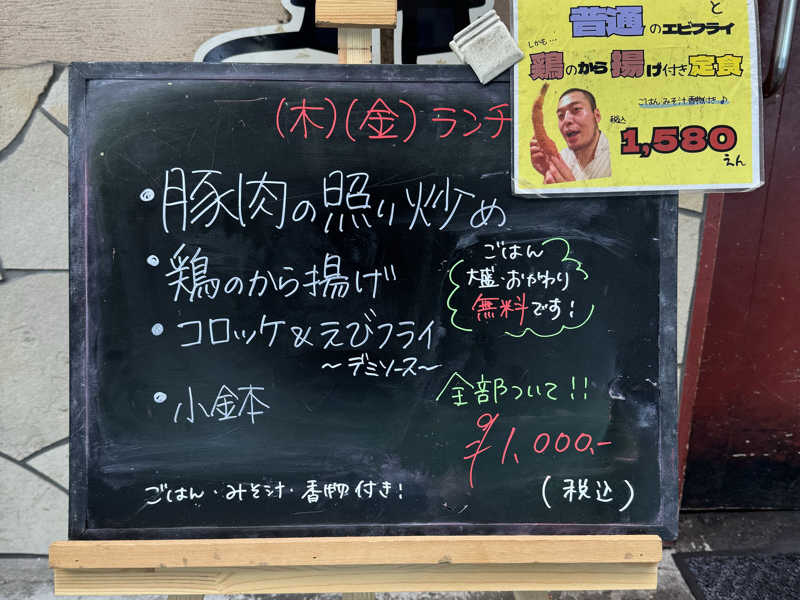 (木)(金) ランチ
・豚肉の照り炒め
・鶏のから揚げ
・コロッケ&えびフライ
～デミソース～
・小鉢
ごはん
大盛・おかわり
無料です!
全部ついて!!
¥1,000.-
(税込)
ごはん・みそ汁・香物付き!
と
普通のエビフライ
しかも…
鶏のから揚げ付き定食
ごはんみそ汁香物付き♪
税込
1,580えん